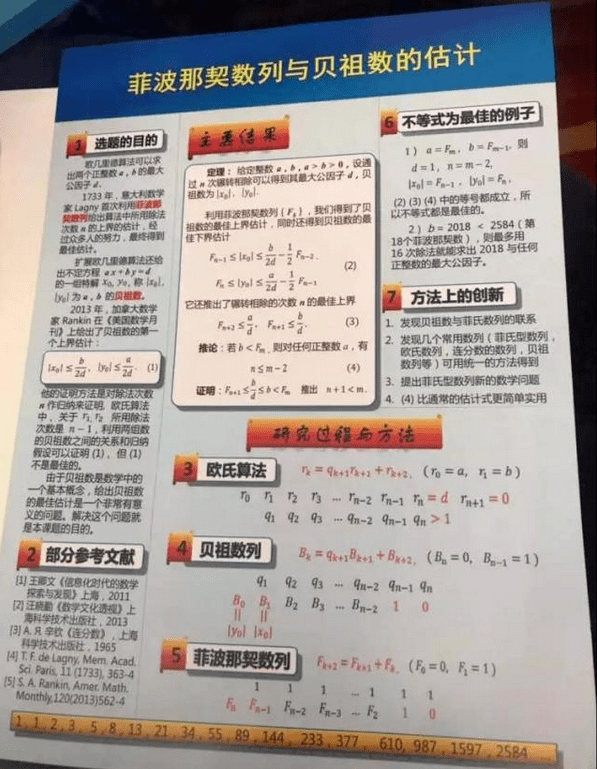 菲波那契数列与贝祖数的估计
1 选题的目的
欧几里德算法可以求
出两个正整数 a , b 的最大
公因子 d.
1733 年，意大利数学
家 Lagny 首次利用菲波那
契数列给出算法中所用除法
次数 n 的上界的估计，经
过众多人的努力，最终得到
最佳估计。
扩展欧几里德算法还给
出不定方程 ax + by = d
的一组特解 x₀, y₀, 称 |x₀|,
|y₀| 为 a , b 的贝祖数。
2013 年，加拿大数学
家 Rankin 在《美国数学月
刊》上给出了贝祖数的第一
个上界估计：
|x₀| ≤ b/2d, |y₀| ≤ a/2d. (1)
他的证明方法是对除法次数
n 作归纳来证明, 欧氏算法
中，关于 r₁, r₂ 所用除法
次数是 n − 1，利用两组数
的贝祖数之间的关系和归纳
假设可以证明 (1)、但 (1)
不是最佳的。
由于贝祖数是数学中的
一个基本概念，给出贝祖数
的最佳估计是一个非常有意
义的问题。解决这个问题就
是本课题的目的。
2 部分参考文献
[1] 王卿文《信息化时代的数学
探索与发现》上海，2011
[2] 汪晓勤《数学文化透视》上
海科学技术出版社，2013
[3] А. Я. 辛钦《连分数》，上海
科学技术出版社，1965
[4] T. F. de Lagny, Mem. Acad.
Sci. Paris, 11 (1733), 363-4
[5] S. A. Rankin, Amer. Math.
Monthly,120(2013)562-4
主要结果
定理：给定整数 a , b , a > b > 0，设通
过 n 次辗转相除可以得到其最大公因子 d，贝
祖数为 |x₀|, |y₀|.
利用菲波那契数列 {Fₖ}，我们得到了贝
祖数的最佳上界估计，同时还得到贝祖数的最
佳下界估计
Fₙ₋₁ ≤ |x₀| ≤ b/2d − 1/2 Fₙ₋₂.
(2)
Fₙ ≤ |y₀| ≤ a/2d − 1/2 Fₙ₋₁
它还推出了辗转相除的次数 n 的最佳上界
Fₙ₊₂ ≤ a/d, Fₙ₊₁ ≤ b/d. (3)
推论：若 b < Fₘ, 则对任何正整数 a，有
n ≤ m − 2 (4)
证明：Fₙ₊₁ ≤ b/d ≤ b < Fₘ 推出 n + 1 < m.
6 不等式为最佳的例子
1） a = Fₘ, b = Fₘ₋₁, 则
d = 1, n = m − 2,
|x₀| = Fₙ₋₁, |y₀| = Fₙ,
(2) (3) (4) 中的等号都成立，所
以不等式都是最佳的。
2）b = 2018 < 2584（第
18个菲波那契数），则最多用
16 次除法就能求出 2018 与任何
正整数的最大公因子。
7 方法上的创新
1. 发现贝祖数与菲氏数列的联系
2. 发现几个常用数列（菲氏型数列，
欧氏数列，连分数的数列，贝祖
数列等）可用统一的方法得到
3. 提出菲氏型数列新的数学问题
4. (4) 比通常的估计式更简单实用
研究过程与方法
3 欧氏算法 rₖ = qₖ₊₁rₖ₊₁ + rₖ₊₂, (r₀ = a, r₁ = b)
r₀ r₁ r₂ r₃ … rₙ₋₂ rₙ₋₁ rₙ = d rₙ₊₁ = 0
q₁ q₂ q₃ … qₙ₋₂ qₙ₋₁ qₙ > 1
4 贝祖数列 Bₖ = qₖ₊₁Bₖ₊₁ + Bₖ₊₂, (Bₙ = 0, Bₙ₋₁ = 1)
q₁ q₂ q₃ … qₙ₋₂ qₙ₋₁ qₙ
B₀ B₁ B₂ B₃ … Bₙ₋₂ 1 0
|| ||
|y₀| |x₀|
5 菲波那契数列 Fₖ₊₂ = Fₖ₊₁ + Fₖ, (F₀ = 0, F₁ = 1)
1 1 1 … 1 1 1
Fₙ Fₙ₋₁ Fₙ₋₂ Fₙ₋₃ … F₂ 1 0
1, 1, 2, 3, 5, 8, 13, 21, 34, 55, 89, 144, 233, 377, 610, 987, 1597, 2584 …